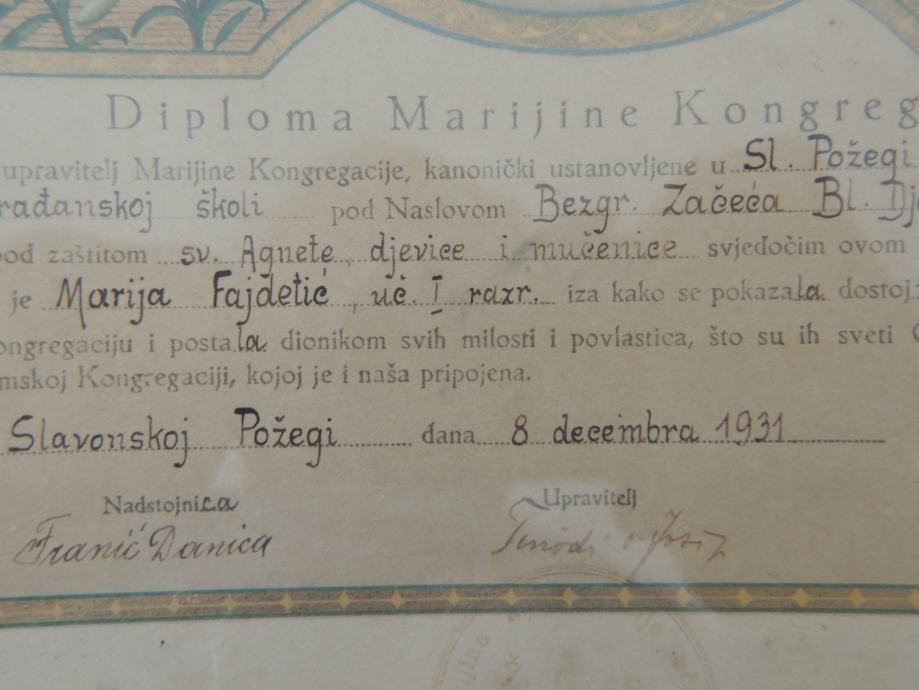 Diploma Marijine Kongreg
upravitelj Marijine Kongregacije, kanonički ustanovljene u Sl. Požegi
rađanskoj školi pod Naslovom Bezgr. Začeća Bl. Dj
pod zaštitom sv. Agnete, djevice i mučenice svjedočim ovom
je Marija Fajdetić, uč. I razr. iza kako se pokazala dostoj
ongregaciju i postala dionikom svih milosti i povlastica, što su ih sveti
mskoj Kongregaciji, kojoj je i naša pripojena.
Slavonskoj Požegi dana 8 decembra 1931
Nadstojnica Upravitelj
Franić Danica Josip